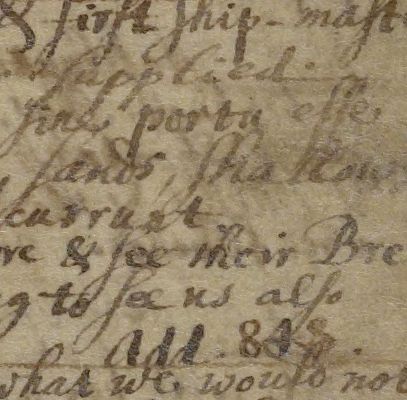 & first ship-mast
supplied.
sine portu esse
sands, shallows
currant
re & see their Bre
g to see us also
Add. 848.
what we would not